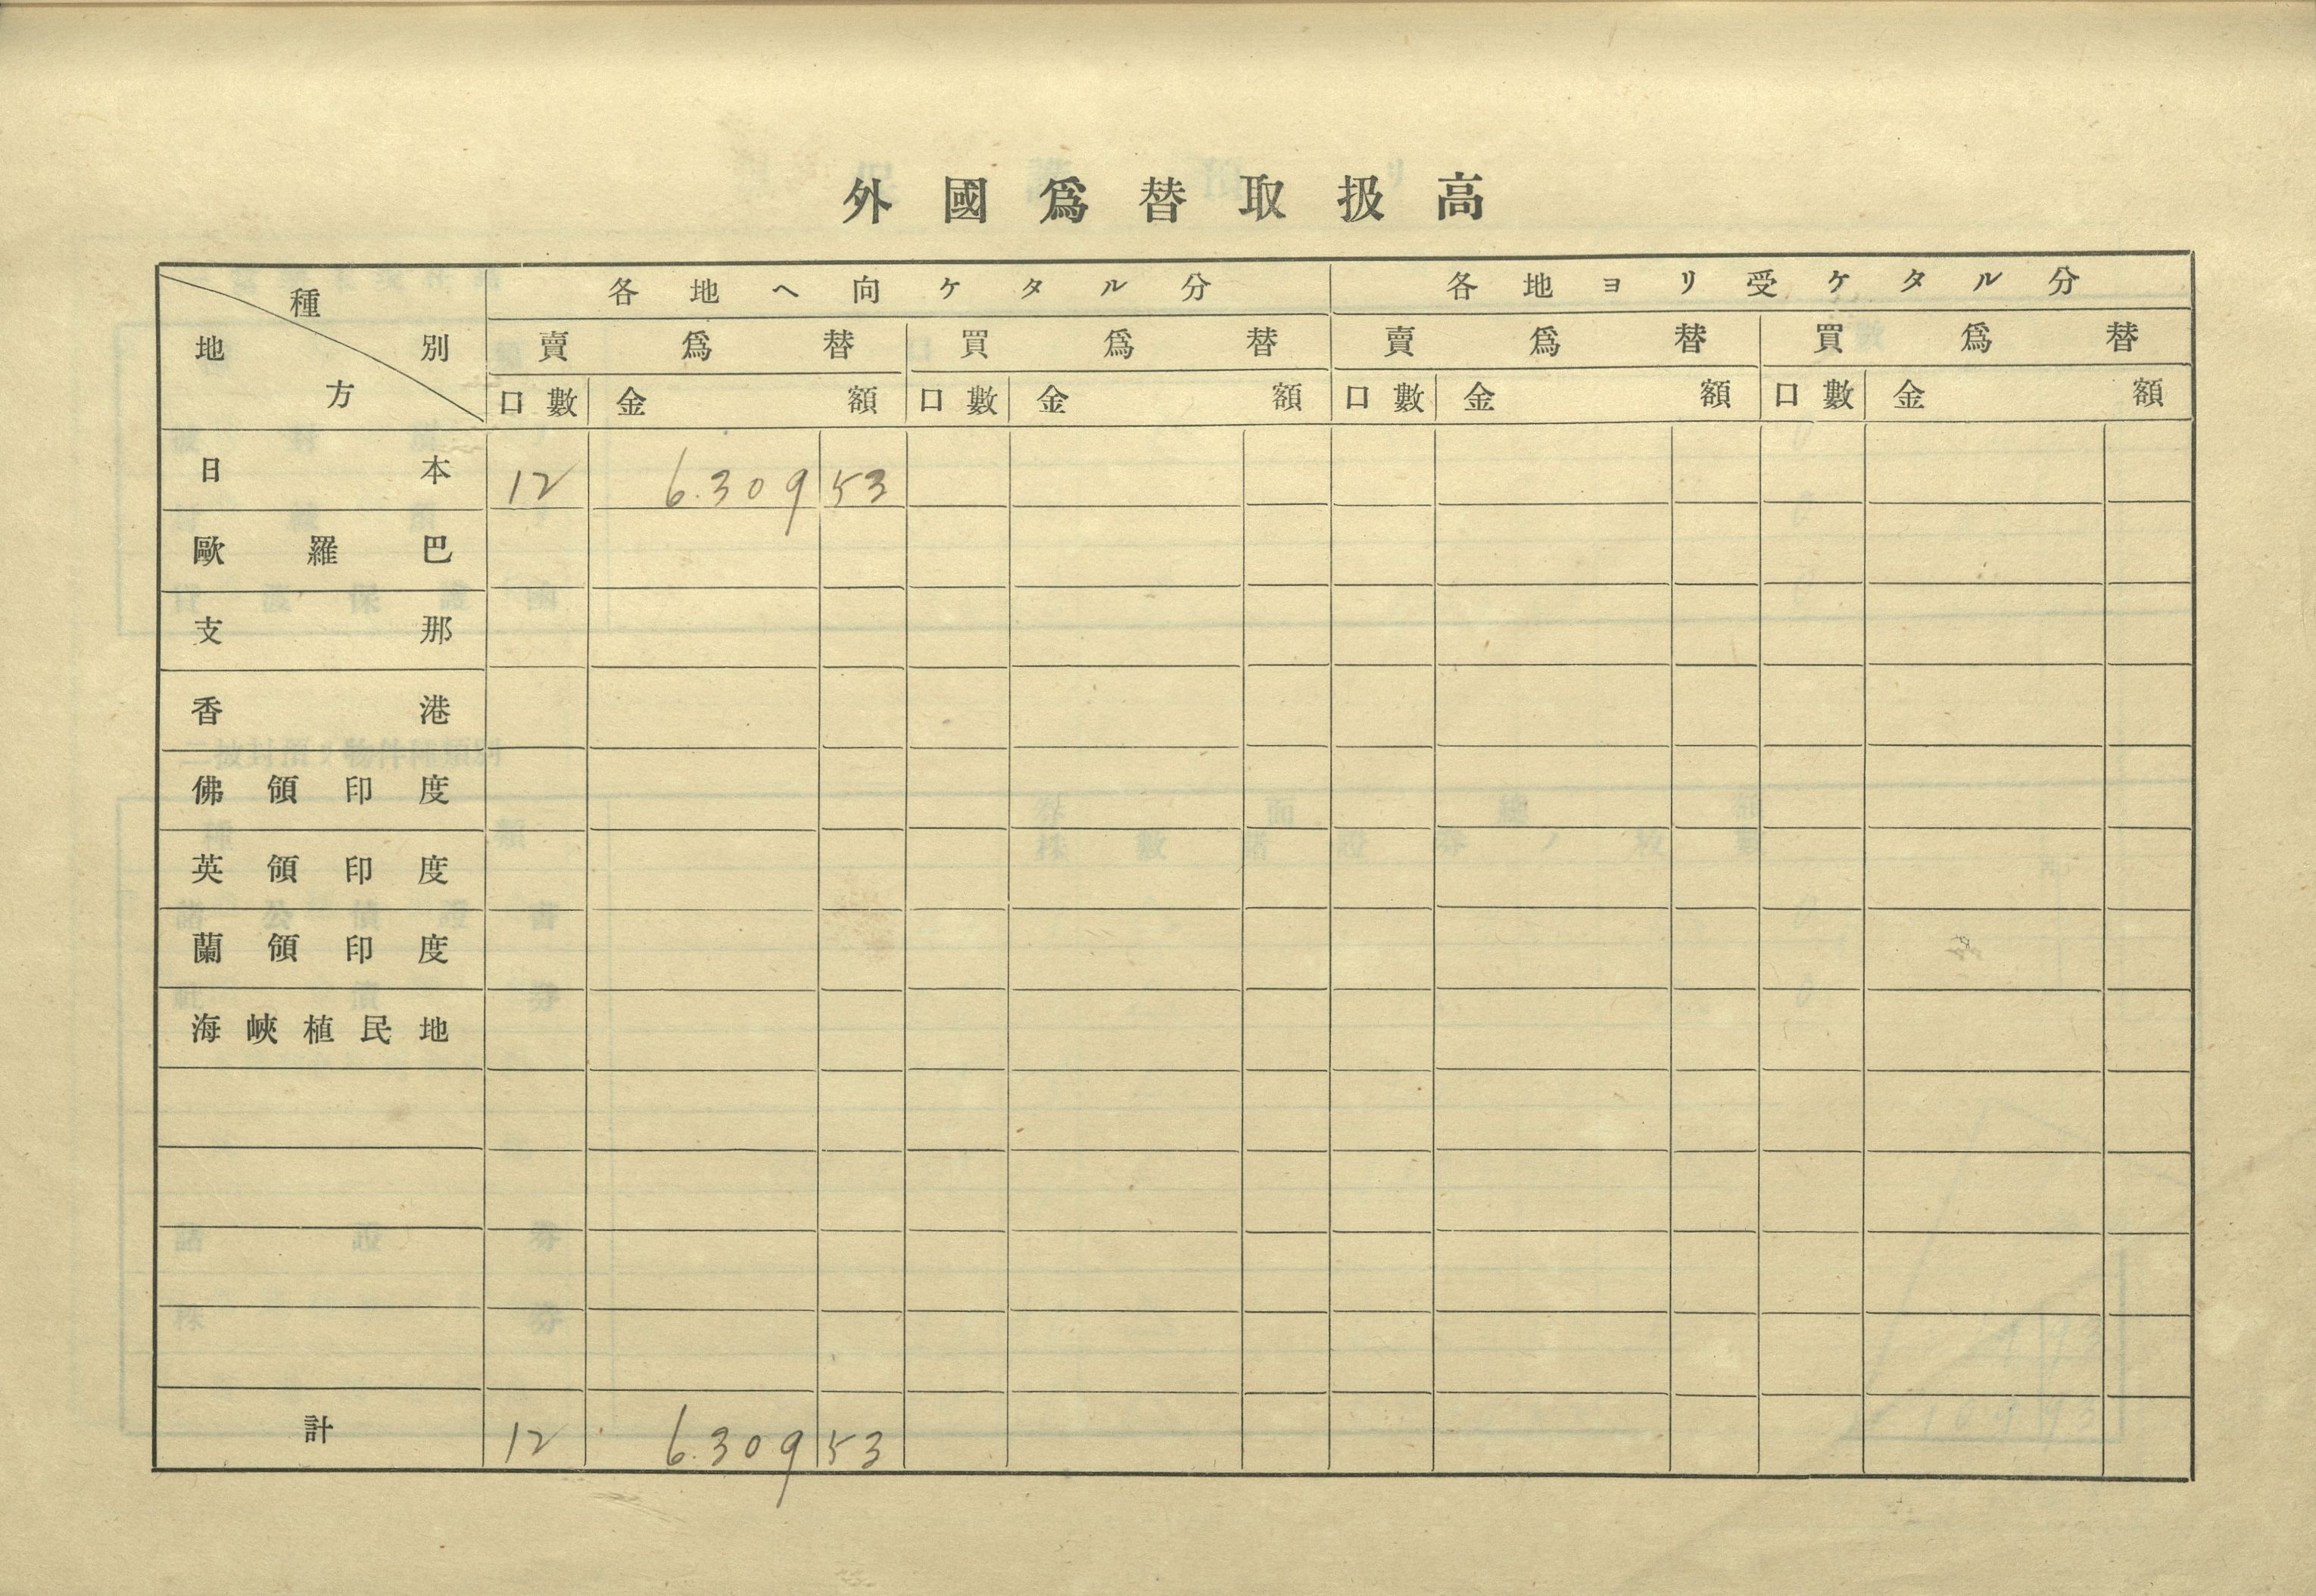 外國爲替取扱高
種別 地方 各地ヘ向ケタル分 各地ヨリ受ケタル分
賣爲替 買爲替 賣爲替 買爲替
口數 金額 口數 金額 口數 金額 口數 金額
日本 12 6.309 53
歐羅巴
支那
香港
佛領印度
英領印度
蘭領印度
海峽植民地
計 12 6.309 53